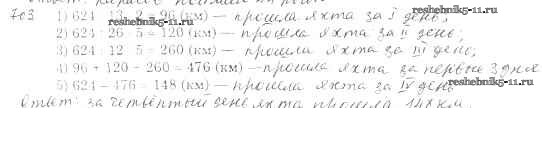 703 1) 624 : 13 · 2 = 96 (км) — прошла яхта за I день;
2) 624 : 26 · 5 = 120 (км) — прошла яхта за II день;
3) 624 : 12 · 5 = 260 (км) — прошла яхта за III день;
4) 96 + 120 + 260 = 476 (км) — прошла яхта за первые 3 дня
5) 624 − 476 = 148 (км) — прошла яхта за IV день
Ответ: за четвёртый день яхта прошла 148 км.
reshebnik5-11.ru
reshebnik5-11.ru
reshebnik5-11.ru